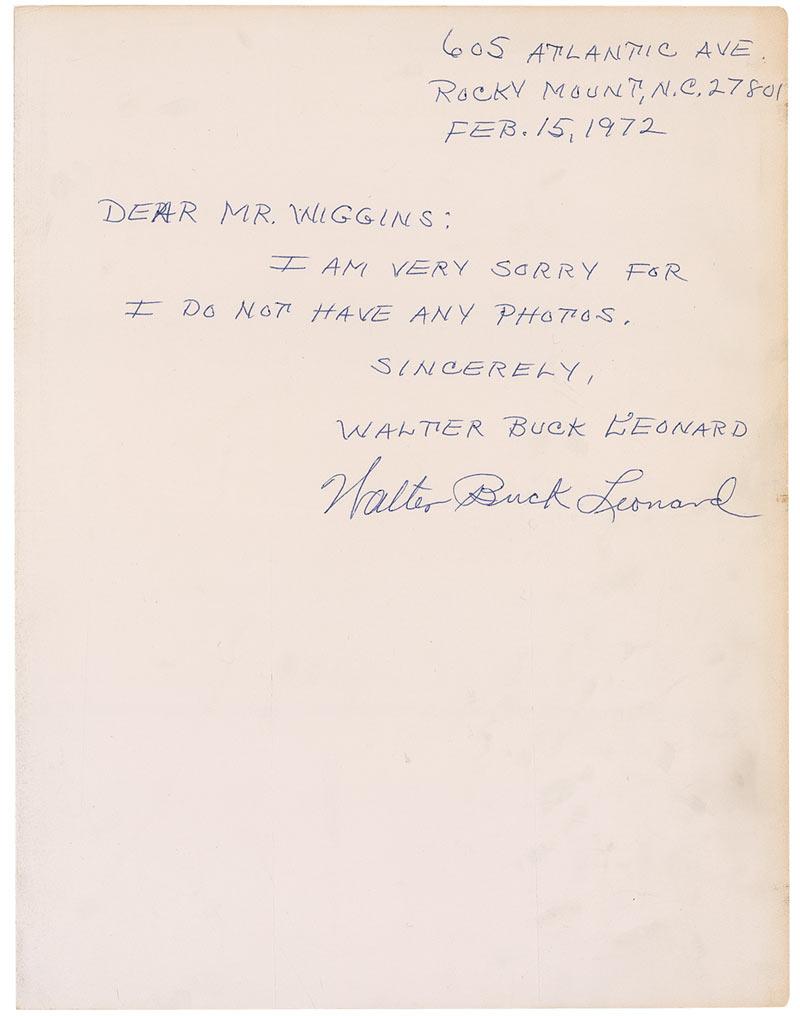 605 ATLANTIC AVE.
ROCKY MOUNT, N.C. 27801
FEB. 15, 1972
DEAR MR. WIGGINS:
I AM VERY SORRY FOR
I DO NOT HAVE ANY PHOTOS.
SINCERELY,
WALTER BUCK LEONARD
Walter Buck Leonard